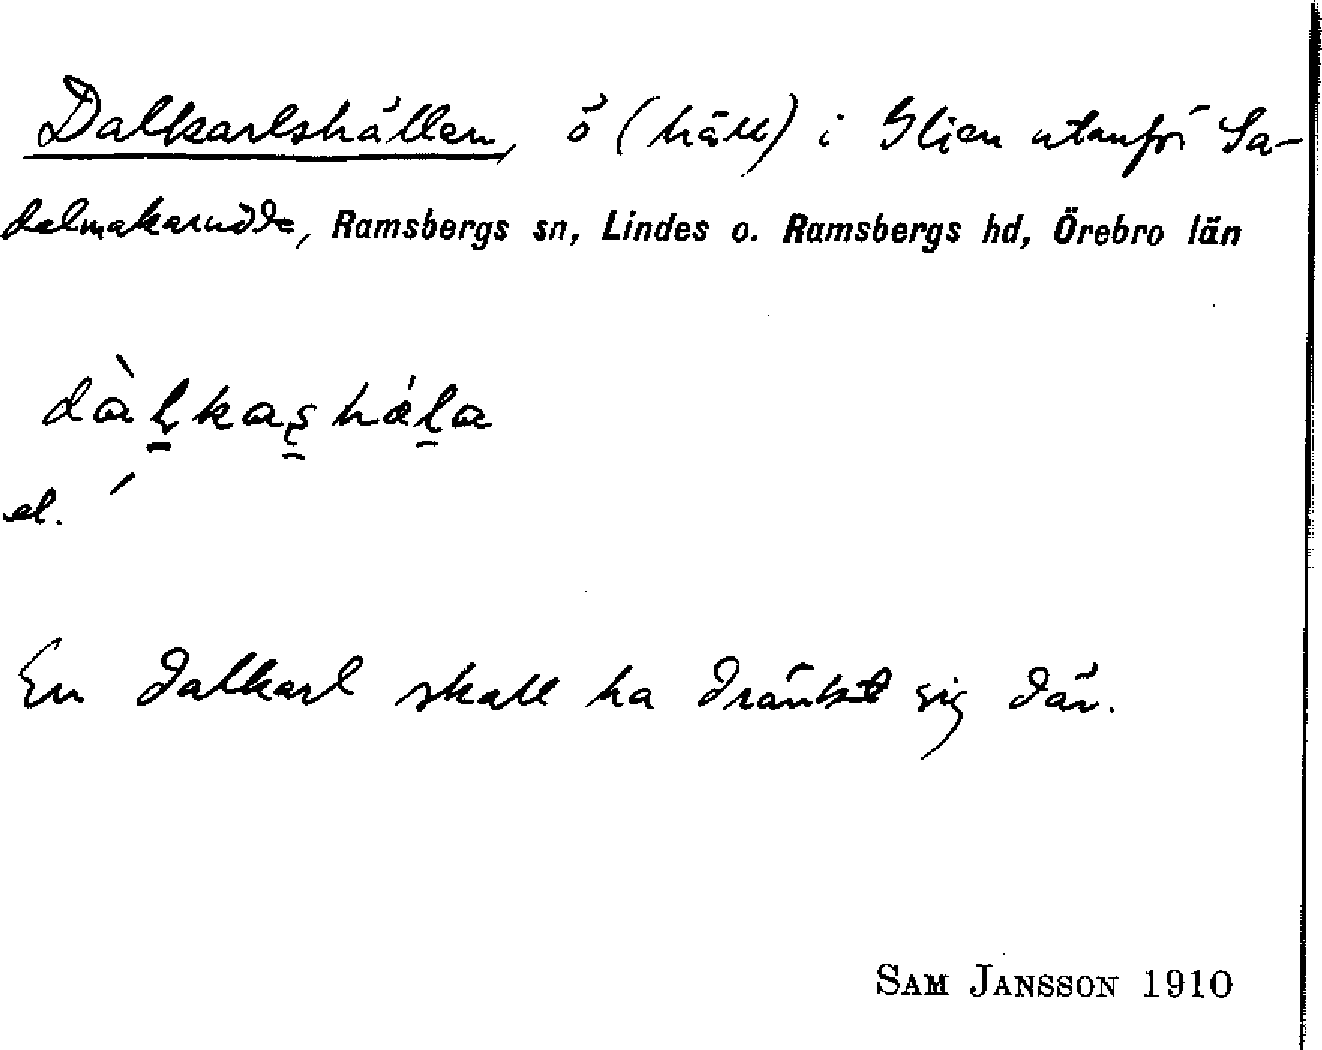 Dalkarlshällen, ö (häll) i Glien utanför Sa-
delmakarudde, Ramsbergs sn, Lindes o. Ramsbergs hd, Örebro län
el.
En dalkarl skall ha dränkt sig där.
SAM JANSSON 1910